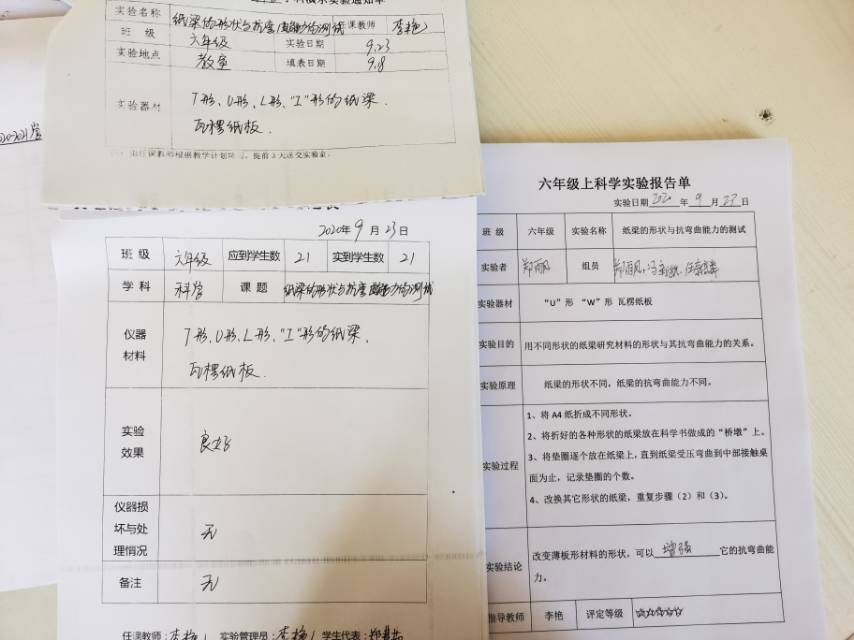 科学演示实验通知单
实验名称 纸梁的形状与抗弯曲能力的测试 任课教师 李艳
班 级 六年级 实验日期 9.23
实验地点 教室 填表日期 9.8
实验器材 T形、U形、L形、"工"形的纸梁、
瓦楞纸板.
由任课教师根据教学计划 提前2天送交实验室。
2020年9月23日
班 级 六年级 应到学生数 21 实到学生数 21
学 科 科学 课 题 纸梁的形状与抗弯曲能力的测试
仪器材料 T形、U形、L形、"工"形的纸梁、
瓦楞纸板.
实验效果 良好
仪器损坏与处理情况 无
备注 无
任课教师:李艳 实验管理员:李艳 学生代表:
六年级上科学实验报告单
实验日期 2020 年 9 月 27 日
班 级 六年级 实验名称 纸梁的形状与抗弯曲能力的测试
实验者 郑雨风 组员 郑雨风、
实验器材 "U"形 "W"形 瓦楞纸板
实验目的 用不同形状的纸梁研究材料的形状与其抗弯曲能力的关系。
实验原理 纸梁的形状不同,纸梁的抗弯曲能力不同。
实验过程 1、将A4纸折成不同形状。
2、将折好的各种形状的纸梁放在科学书做成的"桥墩"上。
3、将垫圈逐个放在纸梁上,直到纸梁受压弯曲到中部接触桌
面为止,记录垫圈的个数。
4、改换其它形状的纸梁,重复步骤(2)和(3)。
实验结论 改变薄板形材料的形状,可以 增强 它的抗弯曲能
力。
指导教师 李艳 评定等级 ☆☆☆☆☆